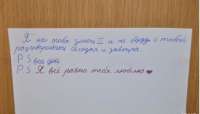 Я на тебя злюсь и не буду с тобой
разговаривать сегодня и завтра.
P.S
P.S Я всё равно тебя люблю ❤